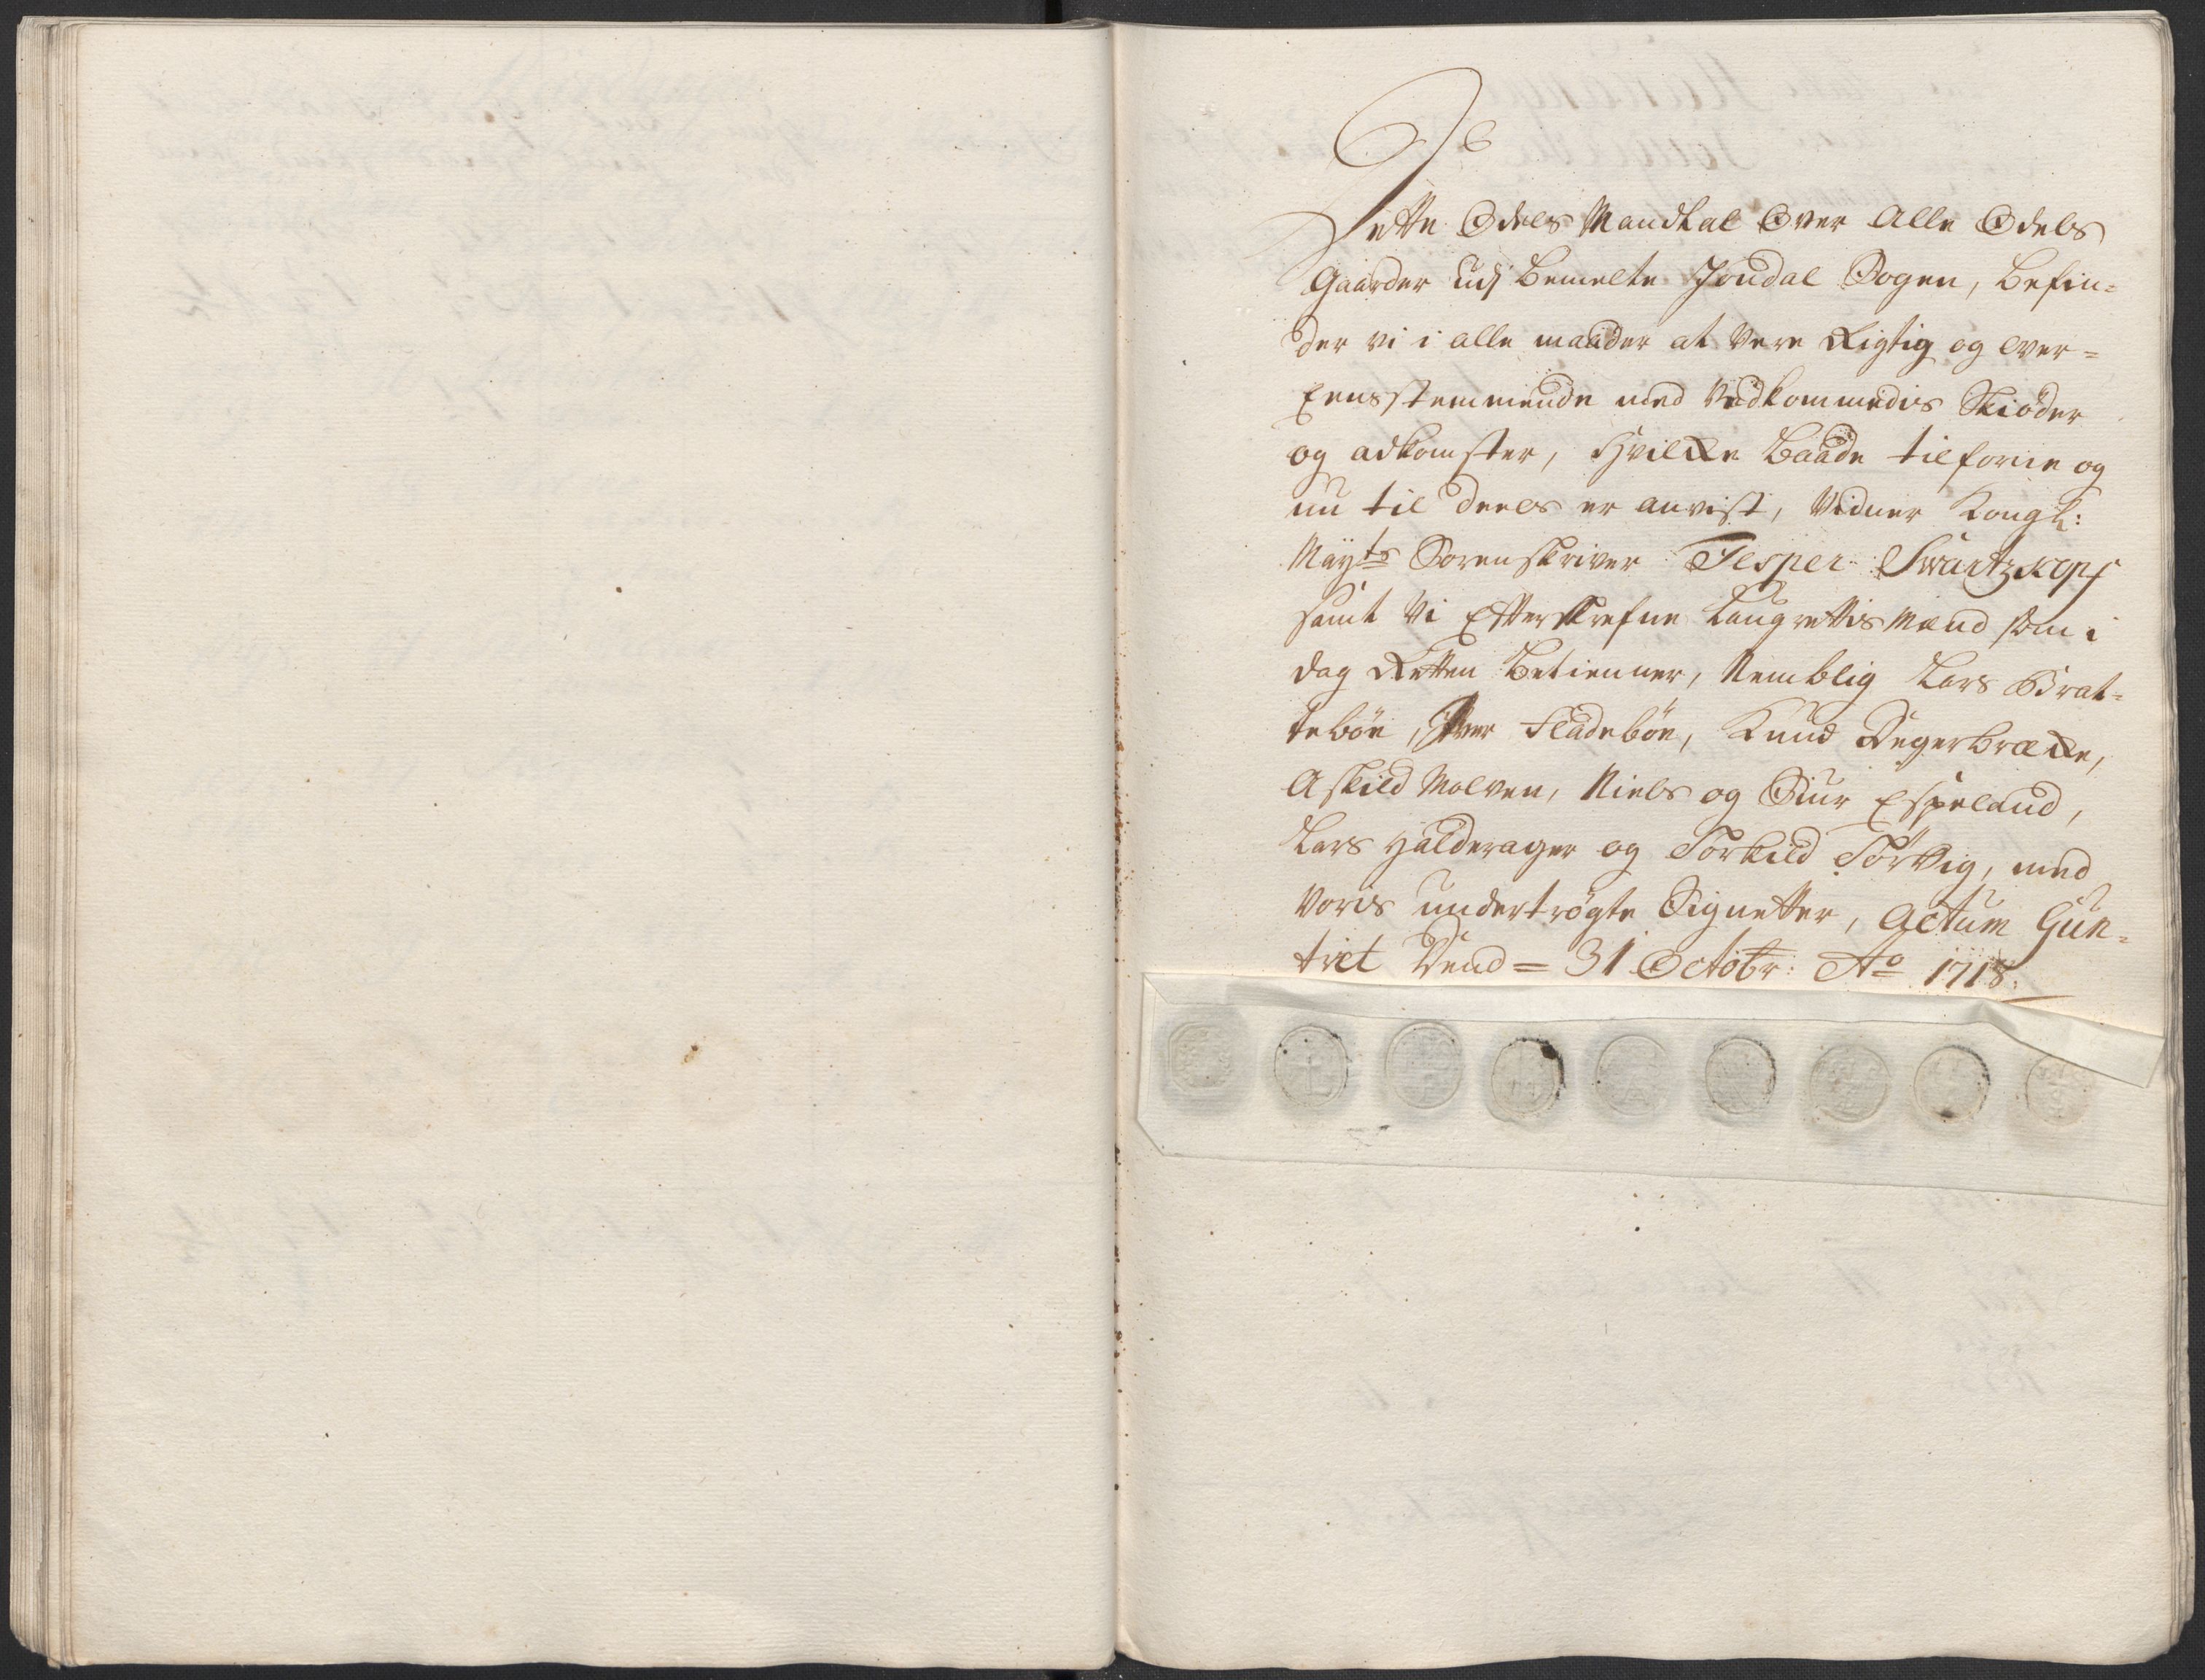 Dette Odels Mandtal Over Alle Odels
Gaarder udj bemelte Jondal Sogen, befin=
der vi i alle maader at vere Rigtig og over=
Eensstemmende med Vedkommedis Skiøder
og adkomster, Hvilcke baade tilforne og
nu til deels er anvist, Vidner Kongl:
Mayts Sorenskriver Jesper Swartzkopf
samt Vi Efterskrefne Laugrettis Mænd som i
dag Retten betienner, Nemblig Lars Brat=
tebøe, Iver Fladebøe, Knud Degerbræcke,
Askild Molven, Niels og Siur Espeland,
Lars Halderager og Torkild Tørvig, med
Voris undertrøgte Signetter, Actum Gun=
tvet Dend = 31 Octobr: Ao 1718.